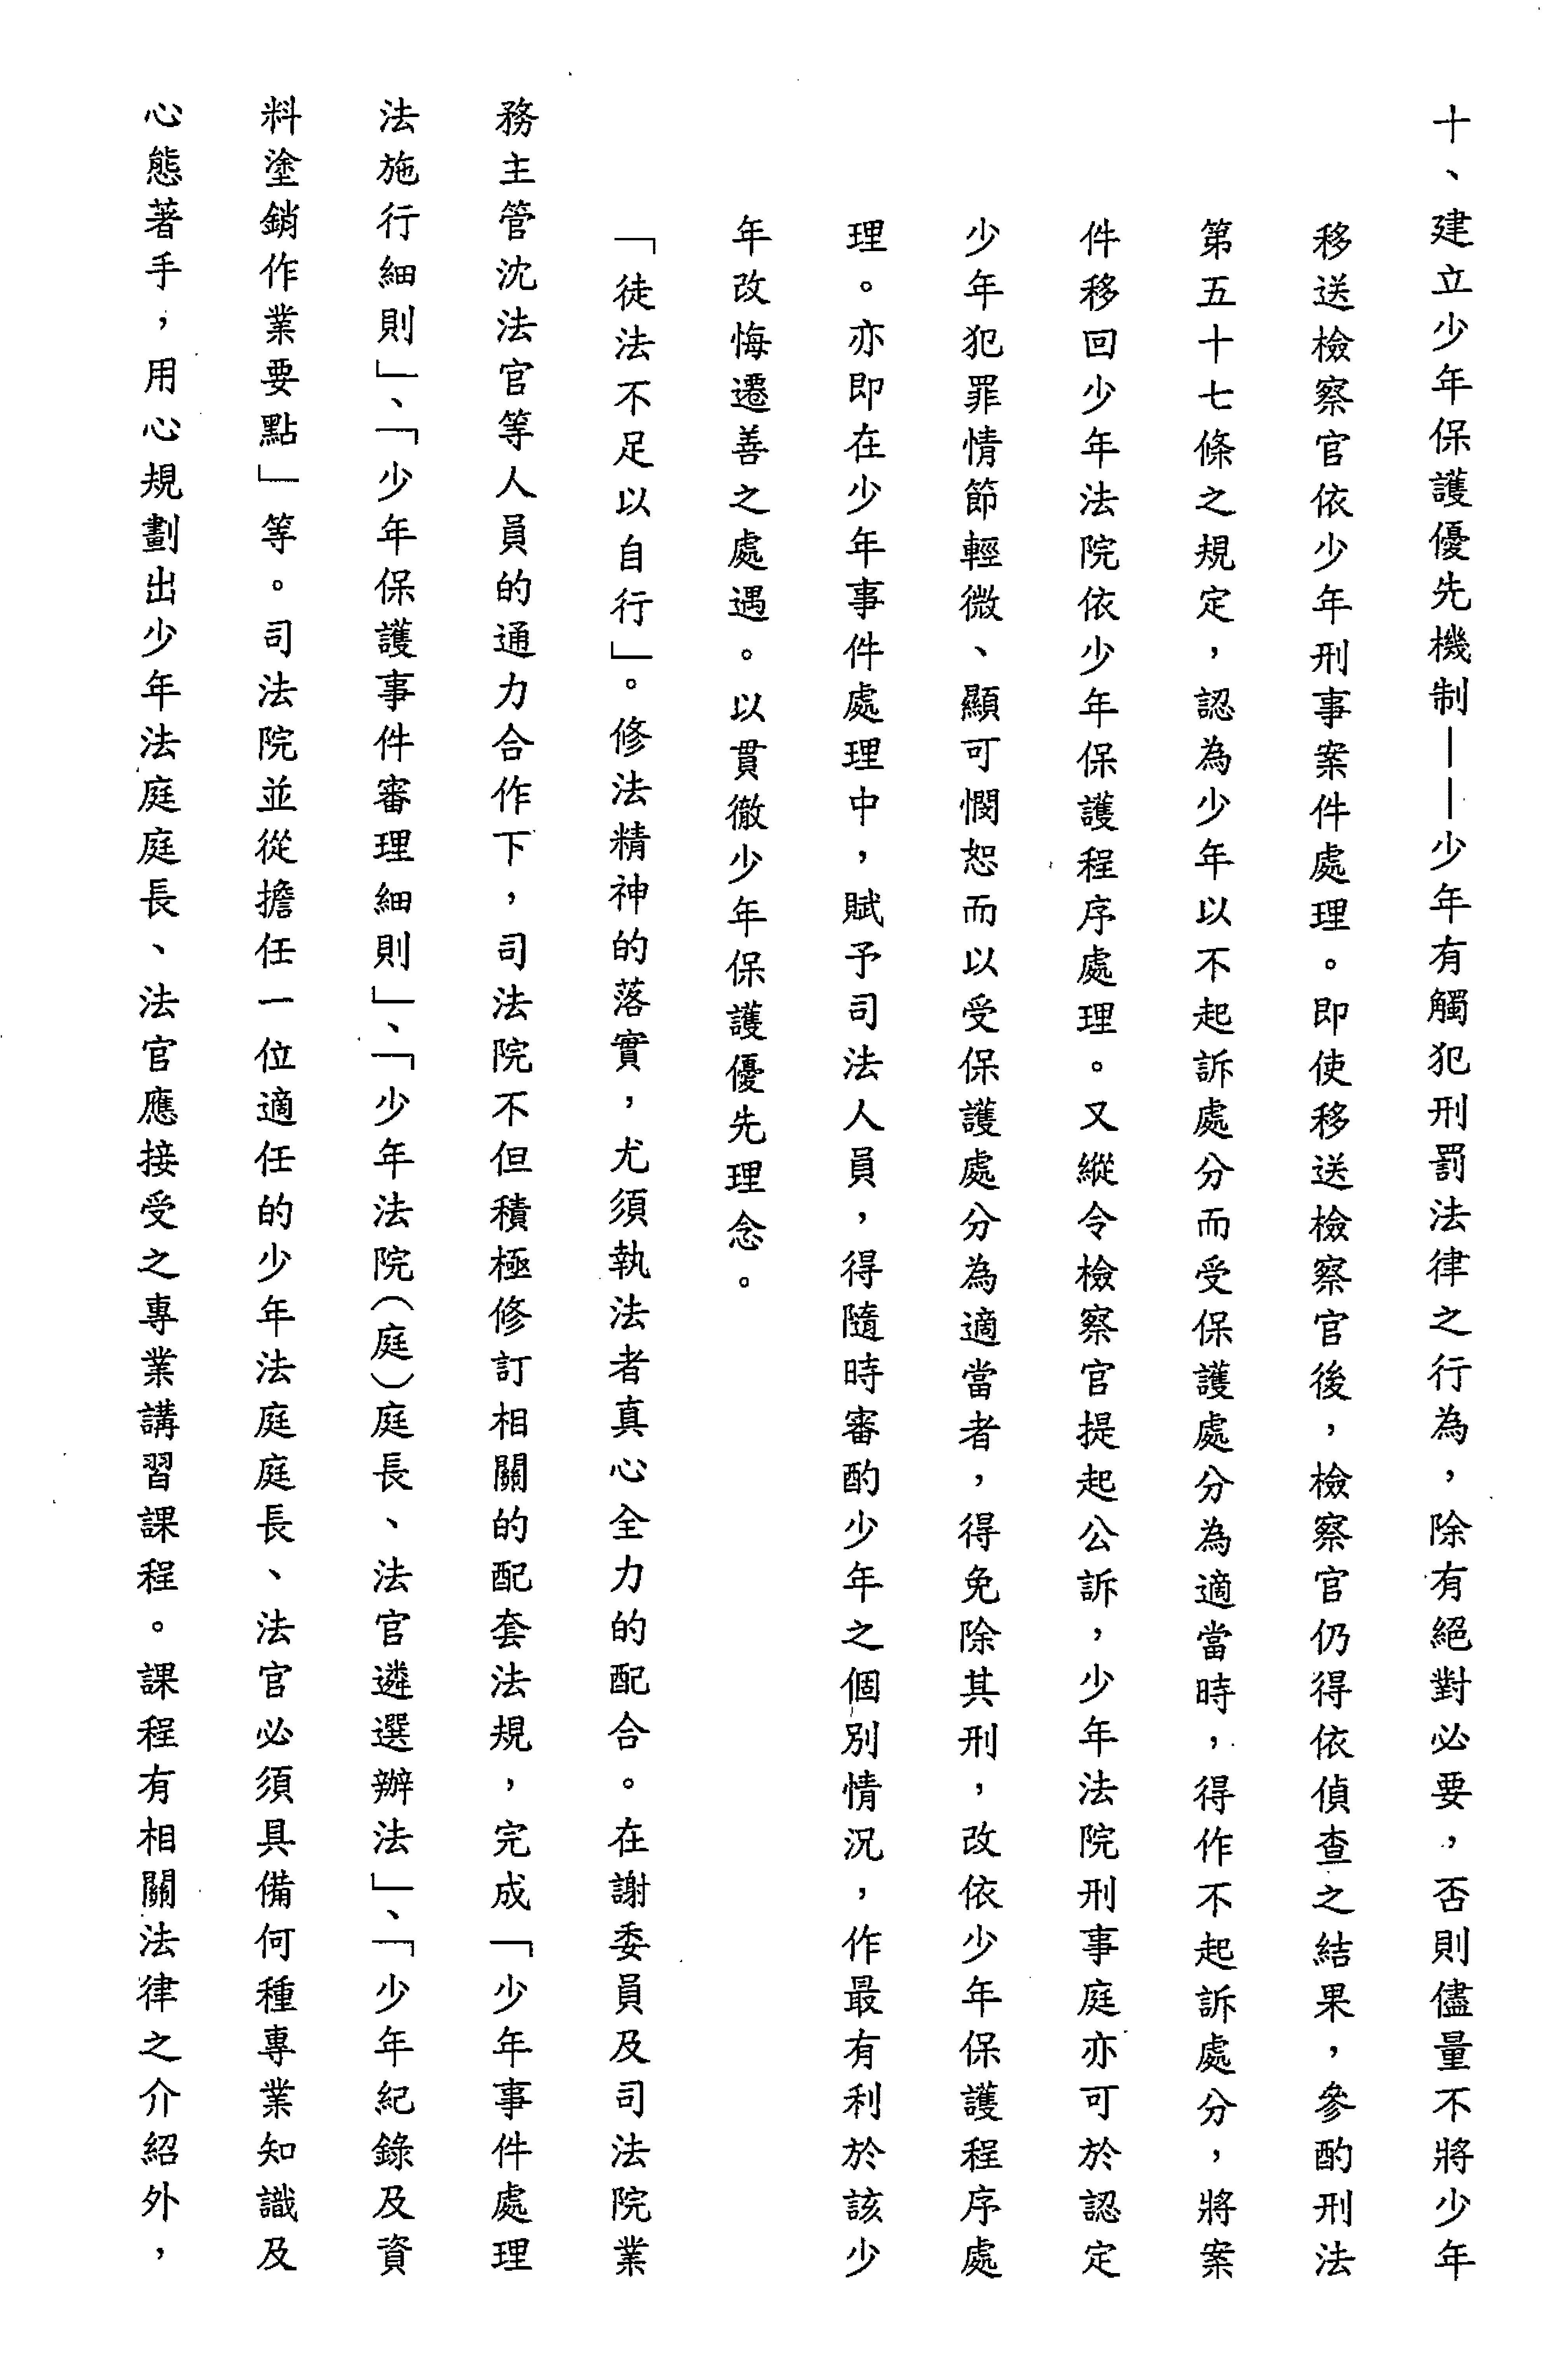 十、建立少年保護優先機制——少年有觸犯刑罰法律之行為，除有絕對必要，否則儘量不將少年
移送檢察官依少年刑事案件處理。即使移送檢察官後，檢察官仍得依偵查之結果，參酌刑法
第五十七條之規定，認為少年以不起訴處分而受保護處分為適當時，得作不起訴處分，將案
件移回少年法院依少年保護程序處理。又縱令檢察官提起公訴，少年法院刑事庭亦可於認定
少年犯罪情節輕微、顯可憫恕而以受保護處分為適當者，得免除其刑，改依少年保護程序處
理。亦即在少年事件處理中，賦予司法人員，得隨時審酌少年之個別情況，作最有利於該少
年改悔遷善之處遇。以貫徹少年保護優先理念。
「徒法不足以自行」。修法精神的落實，尤須執法者真心全力的配合。在謝委員及司法院業
務主管沈法官等人員的通力合作下，司法院不但積極修訂相關的配套法規，完成「少年事件處理
法施行細則」、「少年保護事件審理細則」、「少年法院（庭）庭長、法官遴選辦法」、「少年紀錄及資
料塗銷作業要點」等。司法院並從擔任一位適任的少年法庭庭長、法官必須具備何種專業知識及
心態著手，用心規劃出少年法庭庭長、法官應接受之專業講習課程。課程有相關法律之介紹外，